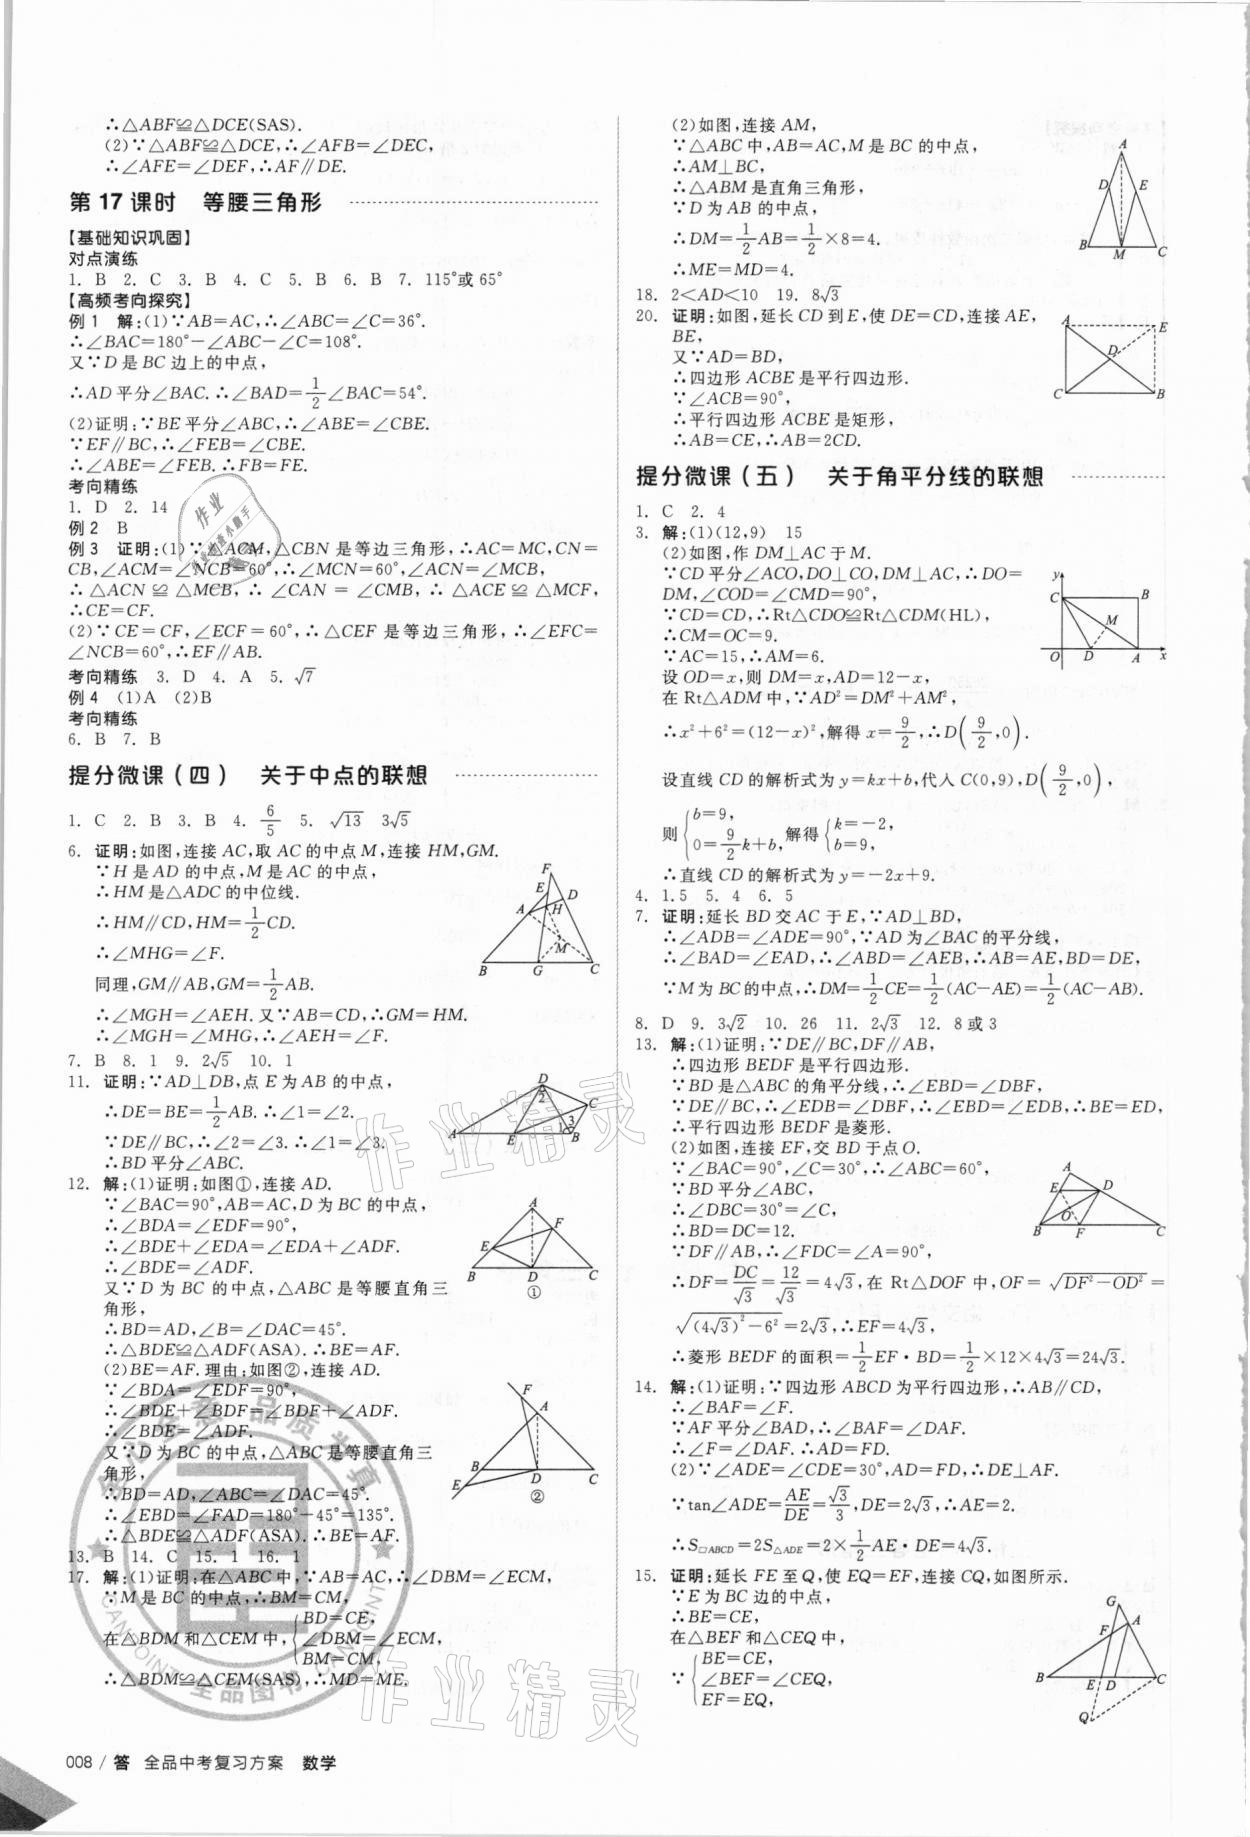 ∴△ABF≌△DCE(SAS).
(2)∵△ABF≌△DCE,∴∠AFB=∠DEC,
∴∠AFE=∠DEF,∴AF∥DE.
第 17 课时　等腰三角形
【基础知识巩固】
对点演练
1. B　2. C　3. B　4. C　5. B　6. B　7. 115°或 65°
【高频考向探究】
例 1　解:(1)∵AB=AC,∴∠ABC=∠C=36°.
∴∠BAC=180°-∠ABC-∠C=108°.
又∵D 是 BC 边上的中点,
∴AD 平分∠BAC.∴∠BAD=1/2∠BAC=54°.
(2)证明:∵BE 平分∠ABC,∴∠ABE=∠CBE.
∵EF∥BC,∴∠FEB=∠CBE.
∴∠ABE=∠FEB.∴FB=FE.
考向精练
1. D　2. 14
例 2　B
例 3　证明:(1)∵△ACM,△CBN 是等边三角形,∴AC=MC,CN=
CB,∠ACM=∠NCB=60°,∴∠MCN=60°,∠ACN=∠MCB,
∴△ACN≌△MCB,∴∠CAN=∠CMB,∴△ACE≌△MCF,
∴CE=CF.
(2)∵CE=CF,∠ECF=60°,∴△CEF 是等边三角形,∴∠EFC=
∠NCB=60°,∴EF∥AB.
考向精练　3. D　4. A　5. √7
例 4　(1)A　(2)B
考向精练
6. B　7. B
提分微课(四)　关于中点的联想
1. C　2. B　3. B　4. 6/5　5. √13　3√5
6. 证明:如图,连接 AC,取 AC 的中点 M,连接 HM,GM.
∵H 是 AD 的中点,M 是 AC 的中点,
∴HM 是△ADC 的中位线.
∴HM∥CD,HM=1/2CD.
∴∠MHG=∠F.
同理,GM∥AB,GM=1/2AB.
∴∠MGH=∠AEH.又∵AB=CD,∴GM=HM.
∴∠MGH=∠MHG,∴∠AEH=∠F.
F
E D
A H
M
B G C
7. B　8. 1　9. 2√5　10. 1
11. 证明:∵AD⊥DB,点 E 为 AB 的中点,
∴DE=BE=1/2AB.∴∠1=∠2.
∵DE∥BC,∴∠2=∠3.∴∠1=∠3.
∴BD 平分∠ABC.
D
2 C
3
1
A E B
12. 解:(1)证明:如图①,连接 AD.
∵∠BAC=90°,AB=AC,D 为 BC 的中点,
∴∠BDA=∠EDF=90°,
∴∠BDE+∠EDA=∠EDA+∠ADF.
∴∠BDE=∠ADF.
又∵D 为 BC 的中点,△ABC 是等腰直角三
角形,
∴BD=AD,∠B=∠DAC=45°.
∴△BDE≌△ADF(ASA).∴BE=AF.
A
F
E
B D C
①
(2)BE=AF.理由:如图②,连接 AD.
∵∠BDA=∠EDF=90°,
∴∠BDE+∠BDF=∠BDF+∠ADF.
∴∠BDE=∠ADF.
又∵D 为 BC 的中点,△ABC 是等腰直角三
角形,
∴BD=AD,∠ABC=∠DAC=45°.
∴∠EBD=∠FAD=180°-45°=135°.
∴△BDE≌△ADF(ASA).∴BE=AF.
F
A
B D C
E
②
13. B　14. C　15. 1　16. 1
17. 解:(1)证明,在△ABC 中,∵AB=AC,∴∠DBM=∠ECM,
∵M 是 BC 的中点,∴BM=CM,
在△BDM 和△CEM 中,{BD=CE,
∠DBM=∠ECM,
BM=CM,
∴△BDM≌△CEM(SAS),∴MD=ME.
008 / 答　全品中考复习方案　数学
(2)如图,连接 AM,
∵△ABC 中,AB=AC,M 是 BC 的中点,
∴AM⊥BC,
∴△ABM 是直角三角形,
∵D 为 AB 的中点,
∴DM=1/2AB=1/2×8=4.
∴ME=MD=4.
A
D E
B M C
18. 2<AD<10　19. 8√3
20. 证明:如图,延长 CD 到 E,使 DE=CD,连接 AE,
BE,
又∵AD=BD,
∴四边形 ACBE 是平行四边形.
∵∠ACB=90°,
∴平行四边形 ACBE 是矩形,
∴AB=CE,∴AB=2CD.
A E
D
C B
提分微课(五)　关于角平分线的联想
1. C　2. 4
3. 解:(1)(12,9)　15
(2)如图,作 DM⊥AC 于 M.
∵CD 平分∠ACO,DO⊥CO,DM⊥AC,∴DO=
DM,∠COD=∠CMD=90°,
∵CD=CD,∴Rt△CDO≌Rt△CDM(HL),
∴CM=OC=9.
∵AC=15,∴AM=6.
设 OD=x,则 DM=x,AD=12-x,
在 Rt△ADM 中,∵AD²=DM²+AM²,
∴x²+6²=(12-x)²,解得 x=9/2,∴D(9/2,0).
设直线 CD 的解析式为 y=kx+b,代入 C(0,9),D(9/2,0),
则{b=9,
0=9/2k+b,解得{k=-2,
b=9,
∴直线 CD 的解析式为 y=-2x+9.
y
C B
M
O D A x
4. 1.5　5. 4　6. 5
7. 证明:延长 BD 交 AC 于 E,∵AD⊥BD,
∴∠ADB=∠ADE=90°,∵AD 为∠BAC 的平分线,
∴∠BAD=∠EAD,∴∠ABD=∠AEB,∴AB=AE,BD=DE,
∵M 为 BC 的中点,∴DM=1/2CE=1/2(AC-AE)=1/2(AC-AB).
8. D　9. 3√2　10. 26　11. 2√3　12. 8 或 3
13. 解:(1)证明:∵DE∥BC,DF∥AB,
∴四边形 BEDF 是平行四边形.
∵BD 是△ABC 的角平分线,∴∠EBD=∠DBF,
∵DE∥BC,∴∠EDB=∠DBF,∴∠EBD=∠EDB,∴BE=ED,
∴平行四边形 BEDF 是菱形.
(2)如图,连接 EF,交 BD 于点 O.
∵∠BAC=90°,∠C=30°,∴∠ABC=60°,
∵BD 平分∠ABC,
∴∠DBC=30°=∠C,
∴BD=DC=12.
∵DF∥AB,∴∠FDC=∠A=90°,
∴DF=DC/√3=12/√3=4√3,在 Rt△DOF 中,OF=√(DF²-OD²)=
√((4√3)²-6²)=2√3,∴EF=4√3,
∴菱形 BEDF 的面积=1/2EF·BD=1/2×12×4√3=24√3.
A
E D
O
B F C
14. 解:(1)证明:∵四边形 ABCD 为平行四边形,∴AB∥CD,
∴∠BAF=∠F.
∵AF 平分∠BAD,∴∠BAF=∠DAF.
∴∠F=∠DAF.∴AD=FD.
(2)∵∠ADE=∠CDE=30°,AD=FD,∴DE⊥AF.
∵tan∠ADE=AE/DE=√3/3,DE=2√3,∴AE=2.
∴S▱ABCD=2S△ADE=2×1/2AE·DE=4√3.
15. 证明:延长 FE 至 Q,使 EQ=EF,连接 CQ,如图所示.
∵E 为 BC 边的中点,
∴BE=CE,
在△BEF 和△CEQ 中,
∵{BE=CE,
∠BEF=∠CEQ,
EF=EQ,
G
F A
B E D C
Q
作业精灵
作业精灵
品质
全品图书
CANPOINT
CANPOINT
作业